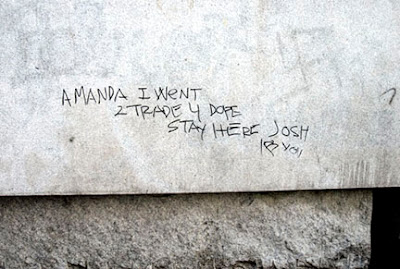 AMANDA I WENT
2 TRADE 4 DOPE
STAY HERE JOSH